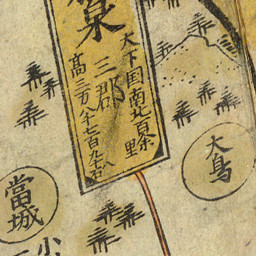 大下国南北百余里
三郡
高三万八千七百九十石
大鳥
當城
小